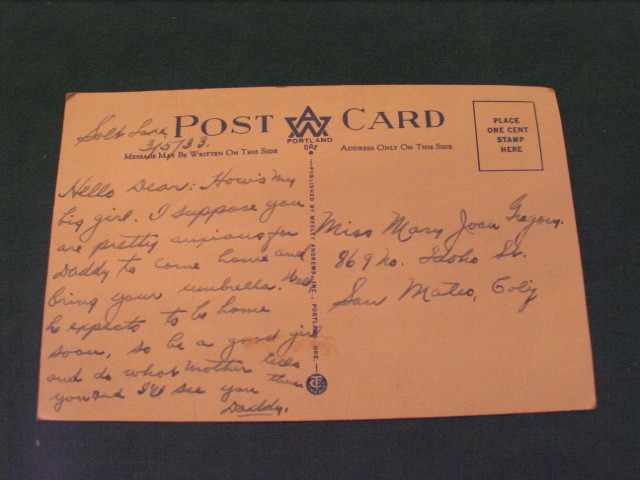 Salt Lake,
3/5/33.
POST CARD
PORTLAND
ORE
MESSAGE MAY BE WRITTEN ON THIS SIDE
ADDRESS ONLY ON THIS SIDE
PLACE
ONE CENT
STAMP
HERE
Hello Dear: How's my
big girl. I suppose you
are pretty anxious for
Daddy to come home and
bring your umbrella. Well
he expects to be home
soon, so be a good girl
and do what mother tells
you and I'll see you then
Daddy.
PUBLISHED BY WESLEY ANDREWS, INC., PORTLAND, ORE.
Miss Mary Joan Gregory.
869 No. Idaho St.
San Mateo, Calif